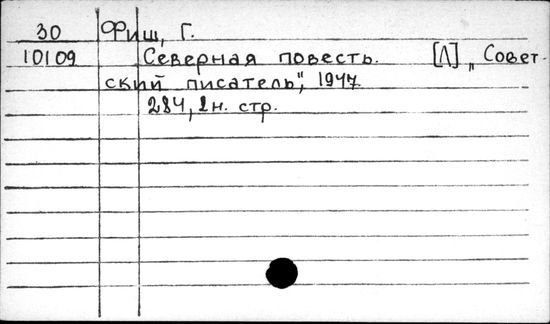 30 Фиш, Г.
10109 Северная повесть. [Л] „Совет-
ский писатель", 1947
284, 2н. стр.